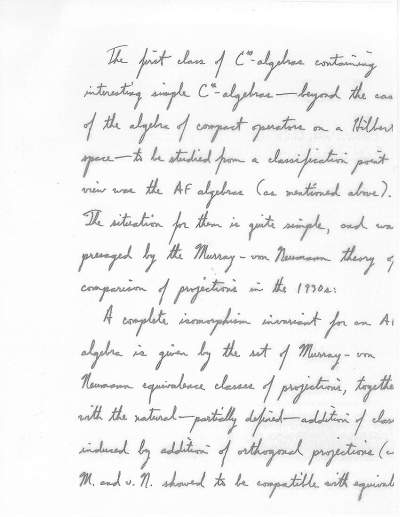 The first class of C*-algebras containing
interesting simple C*-algebras—beyond the cas
of the algebra of compact operators on a Hilbert
space—to be studied from a classification point
view was the AF algebras (as mentioned above).
The situation for them is quite simple, and wa
presaged by the Murray-von Neumann theory of
comparison of projections in the 1930s:
A complete isomorphism invariant for an A
algebra is given by the set of Murray-von
Neumann equivalence classes of projections, togethe
with the natural—partially defined—addition of clas
induced by addition of orthogonal projections (
M. and v. N. showed to be compatible with equival